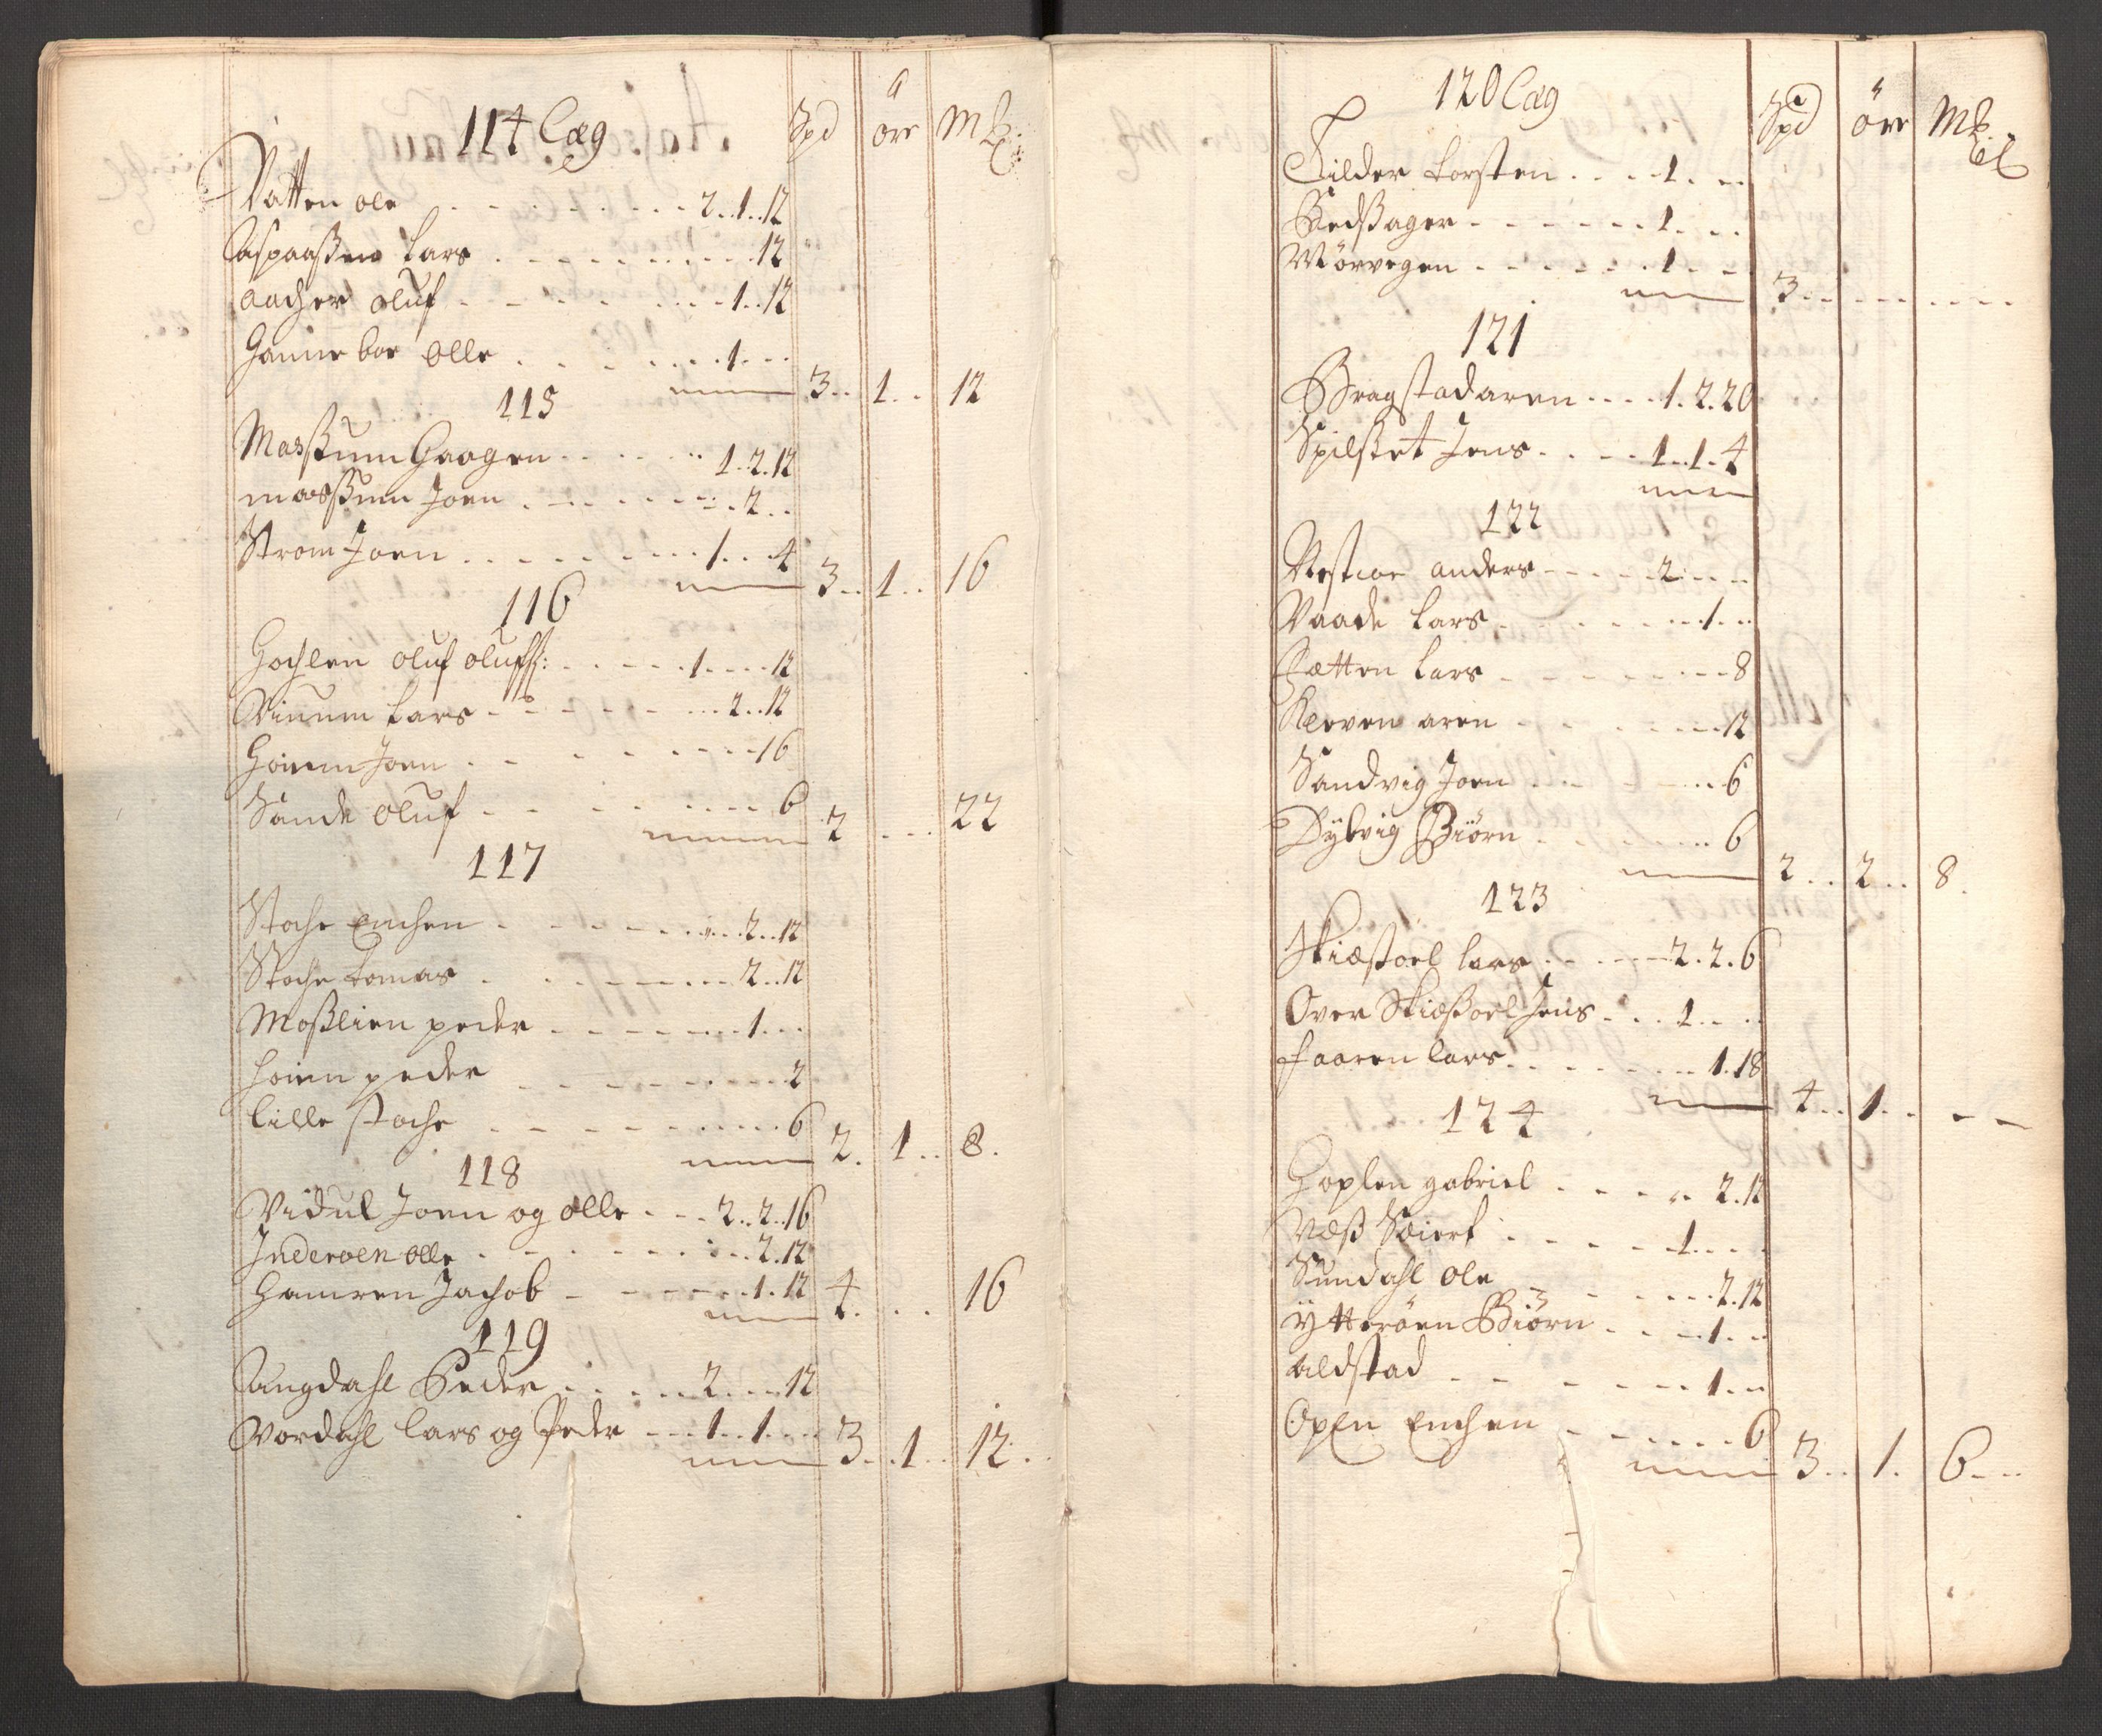 114 Læg Spd öre Mk
Vatten ole 2. 1. 12
Aspaaßen Lars 12
Aacher oluf 1. 12
Hanneboe Olle 1
3. 1. 12
115
Masßum Haagen 1. 2. 12
masßum Joen 2
Strom Joen 1. 4
3. 1. 16
116
Hochlen oluf olufß: 1. 12
Vinnm Lars 2. 12
Hoinm Joen 16
Sande oluf 6
2 22
117
Stoche Enchen 2. 12
Stoche tomas 2. 12
Moßlien peder 1
hoien peder 2
Lille stoche 6
2. 1. 8.
118
Vidul Joen og olle 2. 2. 16
Inderoen olle 2. 12
Hamren Jachob 1. 12
4. 16
119
Langdahl Peder 2. 12
Vordahl Lars og Peder 1. 1
3. 1. 12
120 Læg Spd öre Mk
Filder torsten 1
Bedßager 1
Mörvegen 1
3
121
Bragstadaren 1. 2. 20
Spilset Jens 1. 1. 4
122
Nestvoe anders 2
Vaade Lars 1
Sætten Lars 8
Kleven aren 12
Sandvig Joen 6
Dybvig Biörn 6
2. 2. 8.
123
Skiæstoel Lars 2. 2. 6
Over Skiæßoel Jens 1
faaren Lars 1. 18
4. 1
124
Hoplen gabriel 2. 12
Næß Sivert 1
Sundahl Ole 2. 12
Ytteröen Biörn 1
aldstad 1
Oplen Enchen 6
3. 1. 6